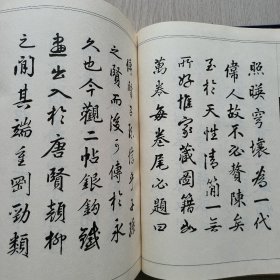 照映穹壤為一代
偉人故不必贅陳矣
至於天性清簡一無
所好惟家藏圖籍山
萬卷每卷尾必題曰
之賢而後可傳於永
久也今觀二帖銀鉤鐵
畫出入於唐賢顏柳
之間其端重剛勁類